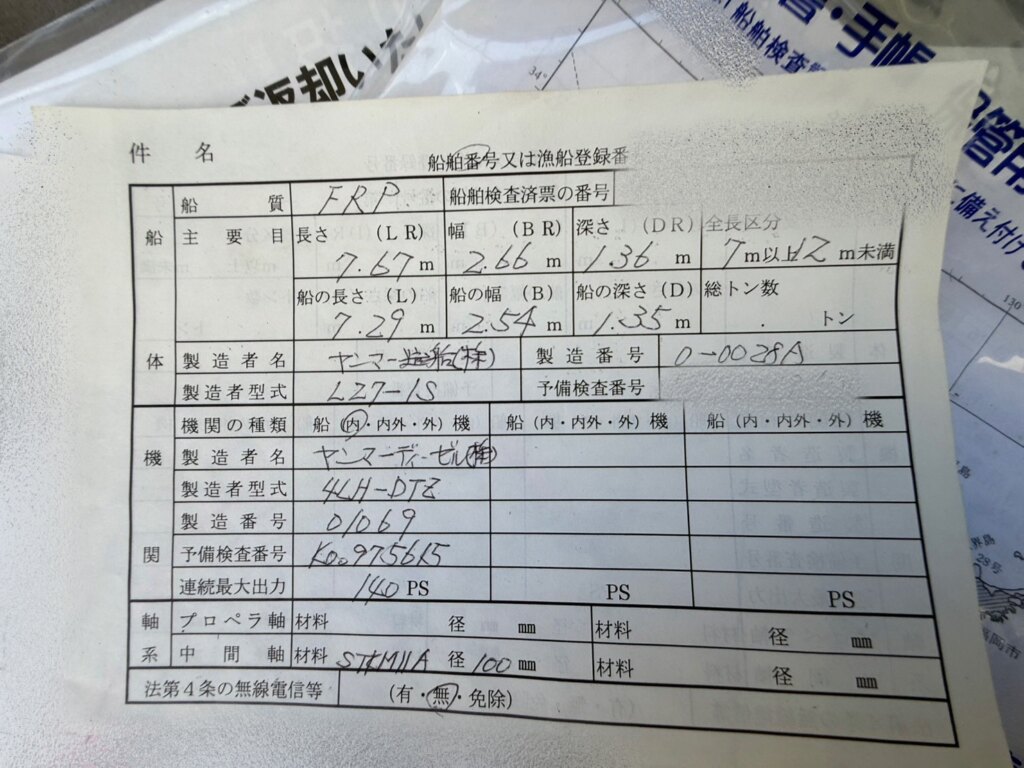 返却いた
管・手帳
船舶検査
34°
管用
に備え付け
130
件 名
船舶番号又は漁船登録番
船 質 FRP 船舶検査済票の番号
船 主要目 長さ (LR) 幅 (BR) 深さ (DR) 全長区分
7.67 m 2.66 m 1.36 m 7 m以上12 m未満
船の長さ (L) 船の幅 (B) 船の深さ (D) 総トン数
7.29 m 2.54 m 1.35 m . トン
体 製造者名 ヤンマー造船(株) 製造番号 0-0028A
製造者型式 LZ7-1S 予備検査番号
機関の種類 船 (内・内外・外) 機 船 (内・内外・外) 機 船 (内・内外・外) 機
機 製造者名 ヤンマーディーゼル(株)
製造者型式 4LH-DTZ
製造番号 01069
関 予備検査番号 K00975615
連続最大出力 140 PS PS PS
軸 プロペラ軸 材料 径 ㎜ 材料 径 ㎜
系 中間軸 材料 STKM11A 径 100 ㎜ 材料 径 ㎜
法第4条の無線電信等 (有・無・免除)